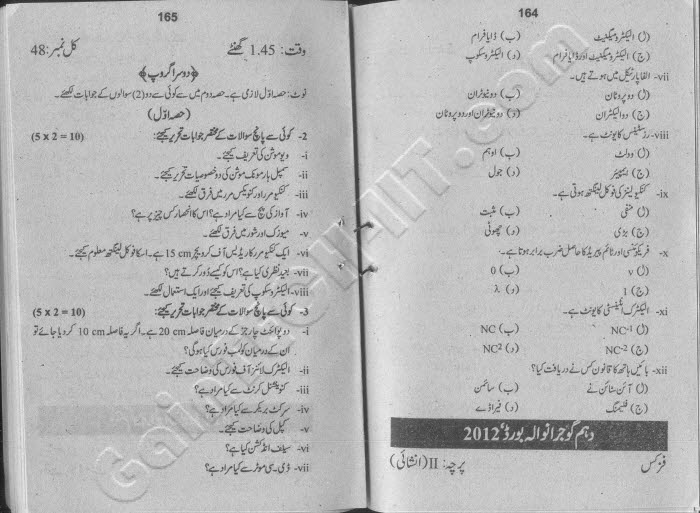 164
(ا) الیکٹرومیگنیٹ (ب) ڈایافرام
(ج) الیکٹرومیگنیٹ اور ڈایافرام (د) الیکٹروسکوپ
vii- الفا پارٹیکل میں ہوتے ہیں۔
(ا) دو پروٹان (ب) دو نیوٹران
(ج) دو الیکٹران (د) دو نیوٹران اور دو پروٹان
viii- رزسٹینس کا یونٹ ہے۔
(ا) وولٹ (ب) اوہم
(ج) ایمپیئر (د) جول
ix- کنکیو لینز کی فوکل لینگتھ ہوتی ہے۔
(ا) منفی (ب) مثبت
(ج) بڑی (د) چھوٹی
x- فریکوئنسی اور ٹائم پیریڈ کا حاصل ضرب برابر ہوتا ہے۔
(ا) ν (ب) 0
(ج) 1 (د) λ
xi- الیکٹرک انٹینسٹی کا یونٹ ہے۔
(ا) NC-1 (ب) NC
(ج) NC-2 (د) NC2
xii- بائیں ہاتھ کا قانون کس نے دریافت کیا؟
(ا) آئن سٹائن نے (ب) سائمن
(ج) فلیمنگ (د) فیراڈے
دہم گوجرانوالہ بورڈ، 2012
فزکس پرچہ: II (انشائی)
165
وقت: 1.45 گھنٹے کل نمبر: 48
﴿دوسرا گروپ﴾
نوٹ: حصہ اوّل لازمی ہے۔ حصہ دوم میں سے کوئی سے دو (2) سوالوں کے جوابات لکھئے۔
(حصہ اوّل)
2- کوئی سے پانچ سوالات کے مختصر جوابات تحریر کیجئے: (5 x 2 = 10)
i- ویو موشن کی تعریف کیجئے۔
ii- سمپل ہارمونک موشن کی دو خصوصیات تحریر کیجئے۔
iii- کنکیو مرر اور کنویکس مرر میں فرق لکھئے۔
iv- آواز کی پچ سے کیا مراد ہے؟ اس کا انحصار کس چیز پر ہے؟
v- میوزک اور شور میں فرق لکھئے۔
vi- ایک کنکیو مرر کا ریڈیس آف کرویچر 15 cm ہے۔ اس کا فوکل لینگتھ معلوم کیجئے۔
vii- بعید نظری کیا ہے؟ اس کو کیسے دُور کرتے ہیں؟
viii- الیکٹروسکوپ کی تعریف کیجئے اور ایک استعمال لکھئے۔
3- کوئی سے پانچ سوالات کے مختصر جوابات تحریر کیجئے: (5 x 2 = 10)
i- دو پوائنٹ چارجز کے درمیان فاصلہ 20 cm ہے۔ اگر یہ فاصلہ 10 cm کر دیا جائے تو
ان کے درمیان کولمب فورس کیا ہوگی؟
ii- الیکٹرک لائنز آف فورس کی وضاحت کیجئے۔
iii- کنونشنل کرنٹ سے کیا مراد ہے؟
iv- سرکٹ بریکر سے کیا مراد ہے؟
v- کپل کی وضاحت کیجئے۔
vi- سیلف انڈکشن کیا ہے؟
vii- ڈی۔سی موٹر سے کیا مراد ہے؟